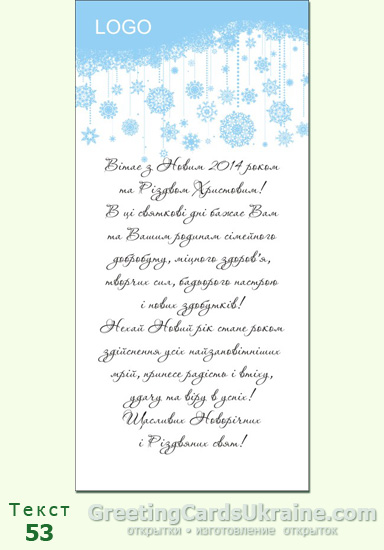 LOGO
Вітає з Новим 2014 роком
та Різдвом Христовим!
В ці святкові дні бажає Вам
та Вашим родинам сімейного
добробуту, міцного здоров'я,
творчих сил, бадьорого настрою
і нових здобутків!
Нехай Новий рік стане роком
здійснення усіх найзаповітніших
мрій, принесе радість і втіху,
удачу та віру в успіх!
Щасливих Новорічних
і Різдвяних свят!
Текст
53
GreetingCardsUkraine.com
открытки • изготовление открыток